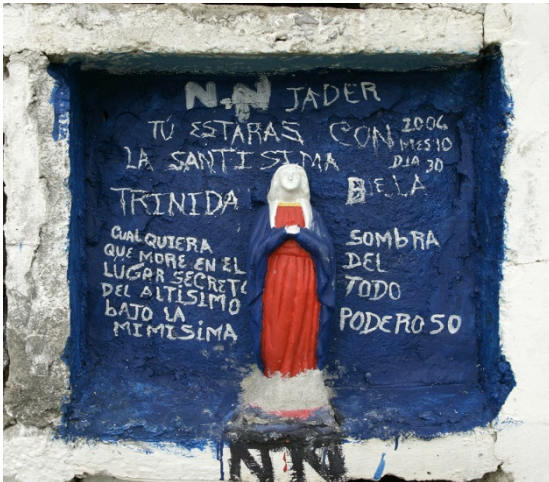 N.N JADER
TÚ ESTARAS CON
2006
MES 10
DIA 30
LA SANTISIMA
TRINIDA
BELA
CUALQUIERA
QUE MORE EN EL
LUGAR SECRETO
DEL ALTÍSIMO
bAJO LA
MIMISíMA
SOMbRA
DEL
TODO
PODEROSO
NN